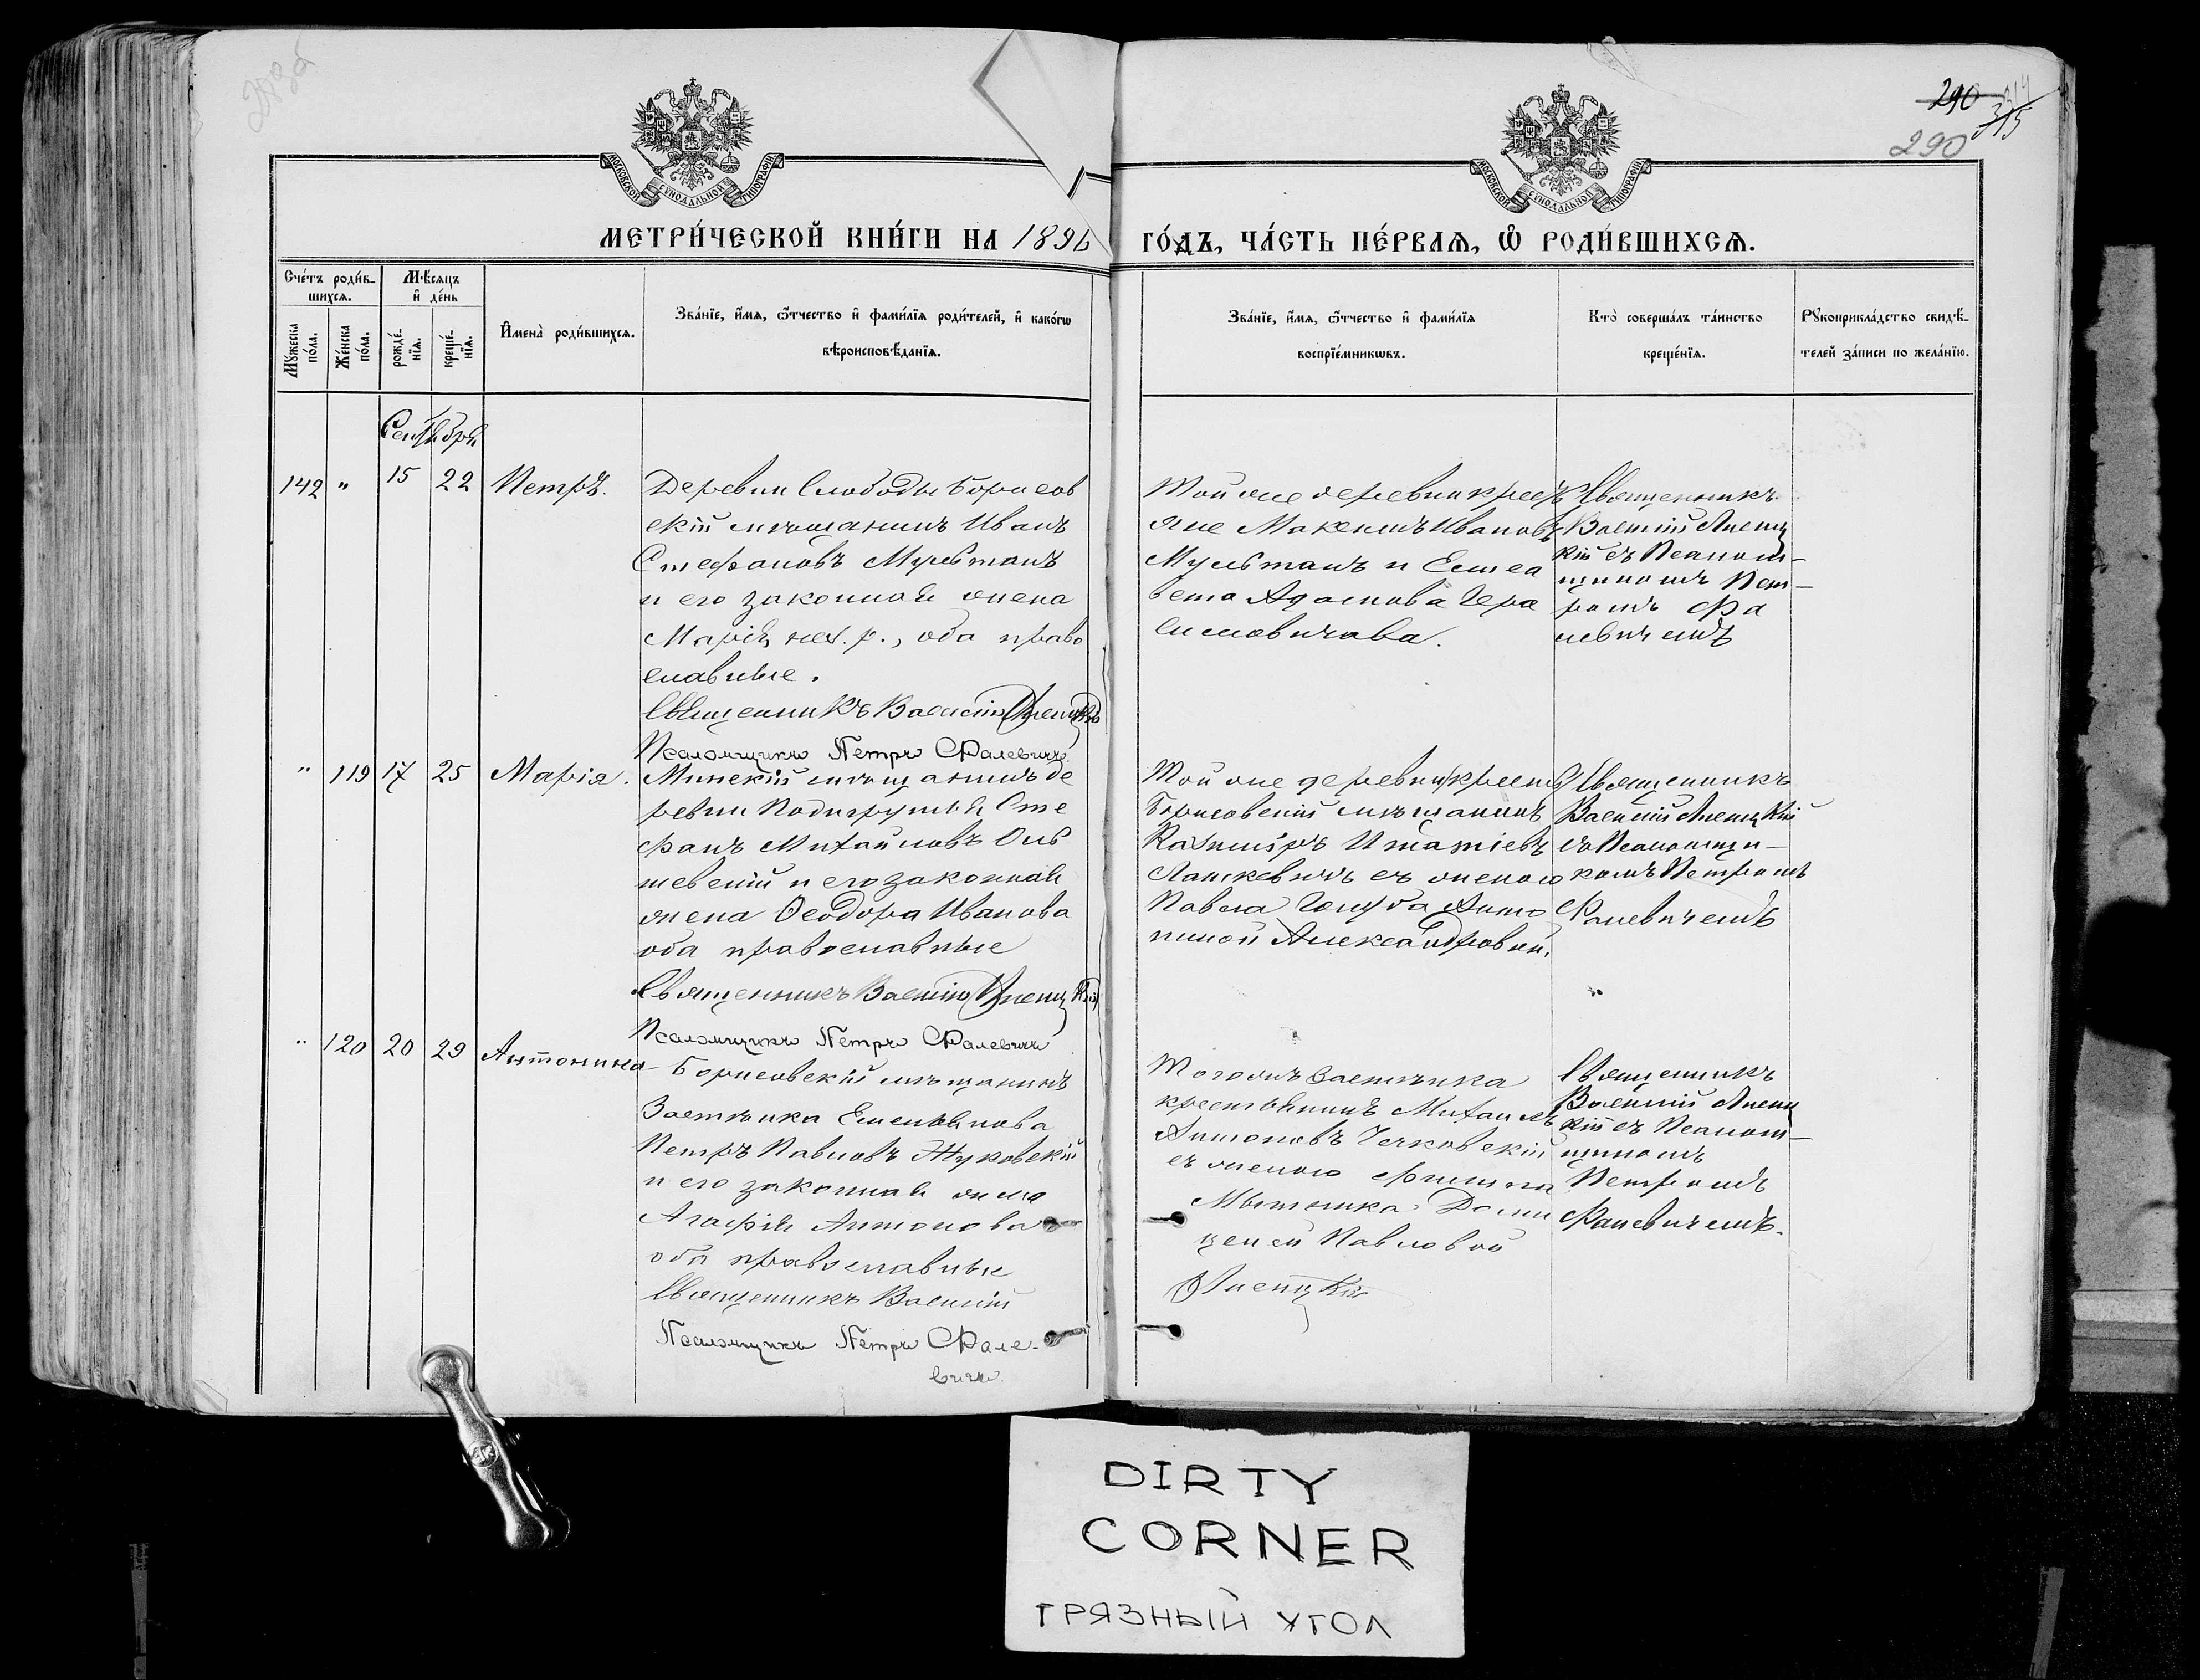 290
315
290
МОСКОВСКОЙ СѴНОДАЛЬНОЙ ТИПОГРАФІИ
МОСКОВСКОЙ СѴНОДАЛЬНОЙ ТИПОГРАФІИ
МЕТРИ́ЧЕСКОЙ КНИ́ГИ НА 1896
ГО́ДЪ, ЧА́СТЬ ПЕ́РВАѦ, Ѽ РОДИ́ВШИХСѦ.
Сче́тъ роди́в-
шихсѧ.
Мꙋжеска по́ла.
Же́нска по́ла.
Мѣ́сѧцъ
и҆ де́нь
рожде́-
нїѧ.
креще́-
нїѧ.
И҆мена̀ роди́вшихсѧ.
Зва́нїе, и҆́мѧ, ѻ҆́тчество и҆ фами́лїѧ роди́телей, и҆ како́гѡ
вѣроисповѣ́данїѧ.
Зва́нїе, и҆́мѧ, ѻ҆́тчество и҆ фами́лїѧ
воспрїе́мникѡвъ.
Кто̀ соверша́лъ та́инство
креще́нїѧ.
Рꙋкоприкла́дство свидѣ́-
телей за́писи по жела́нїю.
Сентября
142 " 15 22 Петръ.
Деревни Слободы Борисов
скій мѣщанинъ Иванъ
Стефановъ Мультанъ
и его законная жена
Марія, обa право
славные.
Священникъ Василій Л
Псаломщикъ Петръ Фалевичъ
Той же деревни крест
яне Максимъ Ивановъ
Мультанъ и Елиса
вета Адамова Гера
симовичева.
Священникъ
Василій
кій съ Псалом-
щикомъ Пет-
ромъ Фа
левичемъ
" 119 17 25 Марія.
Минскій мѣщанинъ де
ревни Подигрушья Сте
фанъ Михайловъ Оль
шевскій и его законная
жена Ѳеодора Иванова
оба православные
Священникъ Василій
Псаломщикъ Петръ Фалевичъ
Той же деревни крест
Борисовскій мѣщанинъ
Казиміръ Игнатіевъ
Лашкевичъ съ женою
Павла Голуба Анто
ниной Александровой.
Священникъ
Василій
съ Псаломщи-
комъ Петромъ
Фалевичемъ
" 120 20 29 Антонина
Борисовскій мѣщанинъ
Застѣнка Емельянова
Петръ Павловъ Жуковскій
и его законная жена
Агафія Антонова
оба православные
Священникъ Василій
Псаломщикъ Петръ Фале-
вичъ.
Того жъ Застѣнка
крестьянинъ Михаилъ
Антоновъ Чечковскій
съ женою
Доми
целей Павловой
Священникъ
Василій
кій съ Псалом-
щикомъ
Петромъ
Фалевичемъ.
DIRTY
CORNER
ГРЯЗНЫЙ УГОЛ